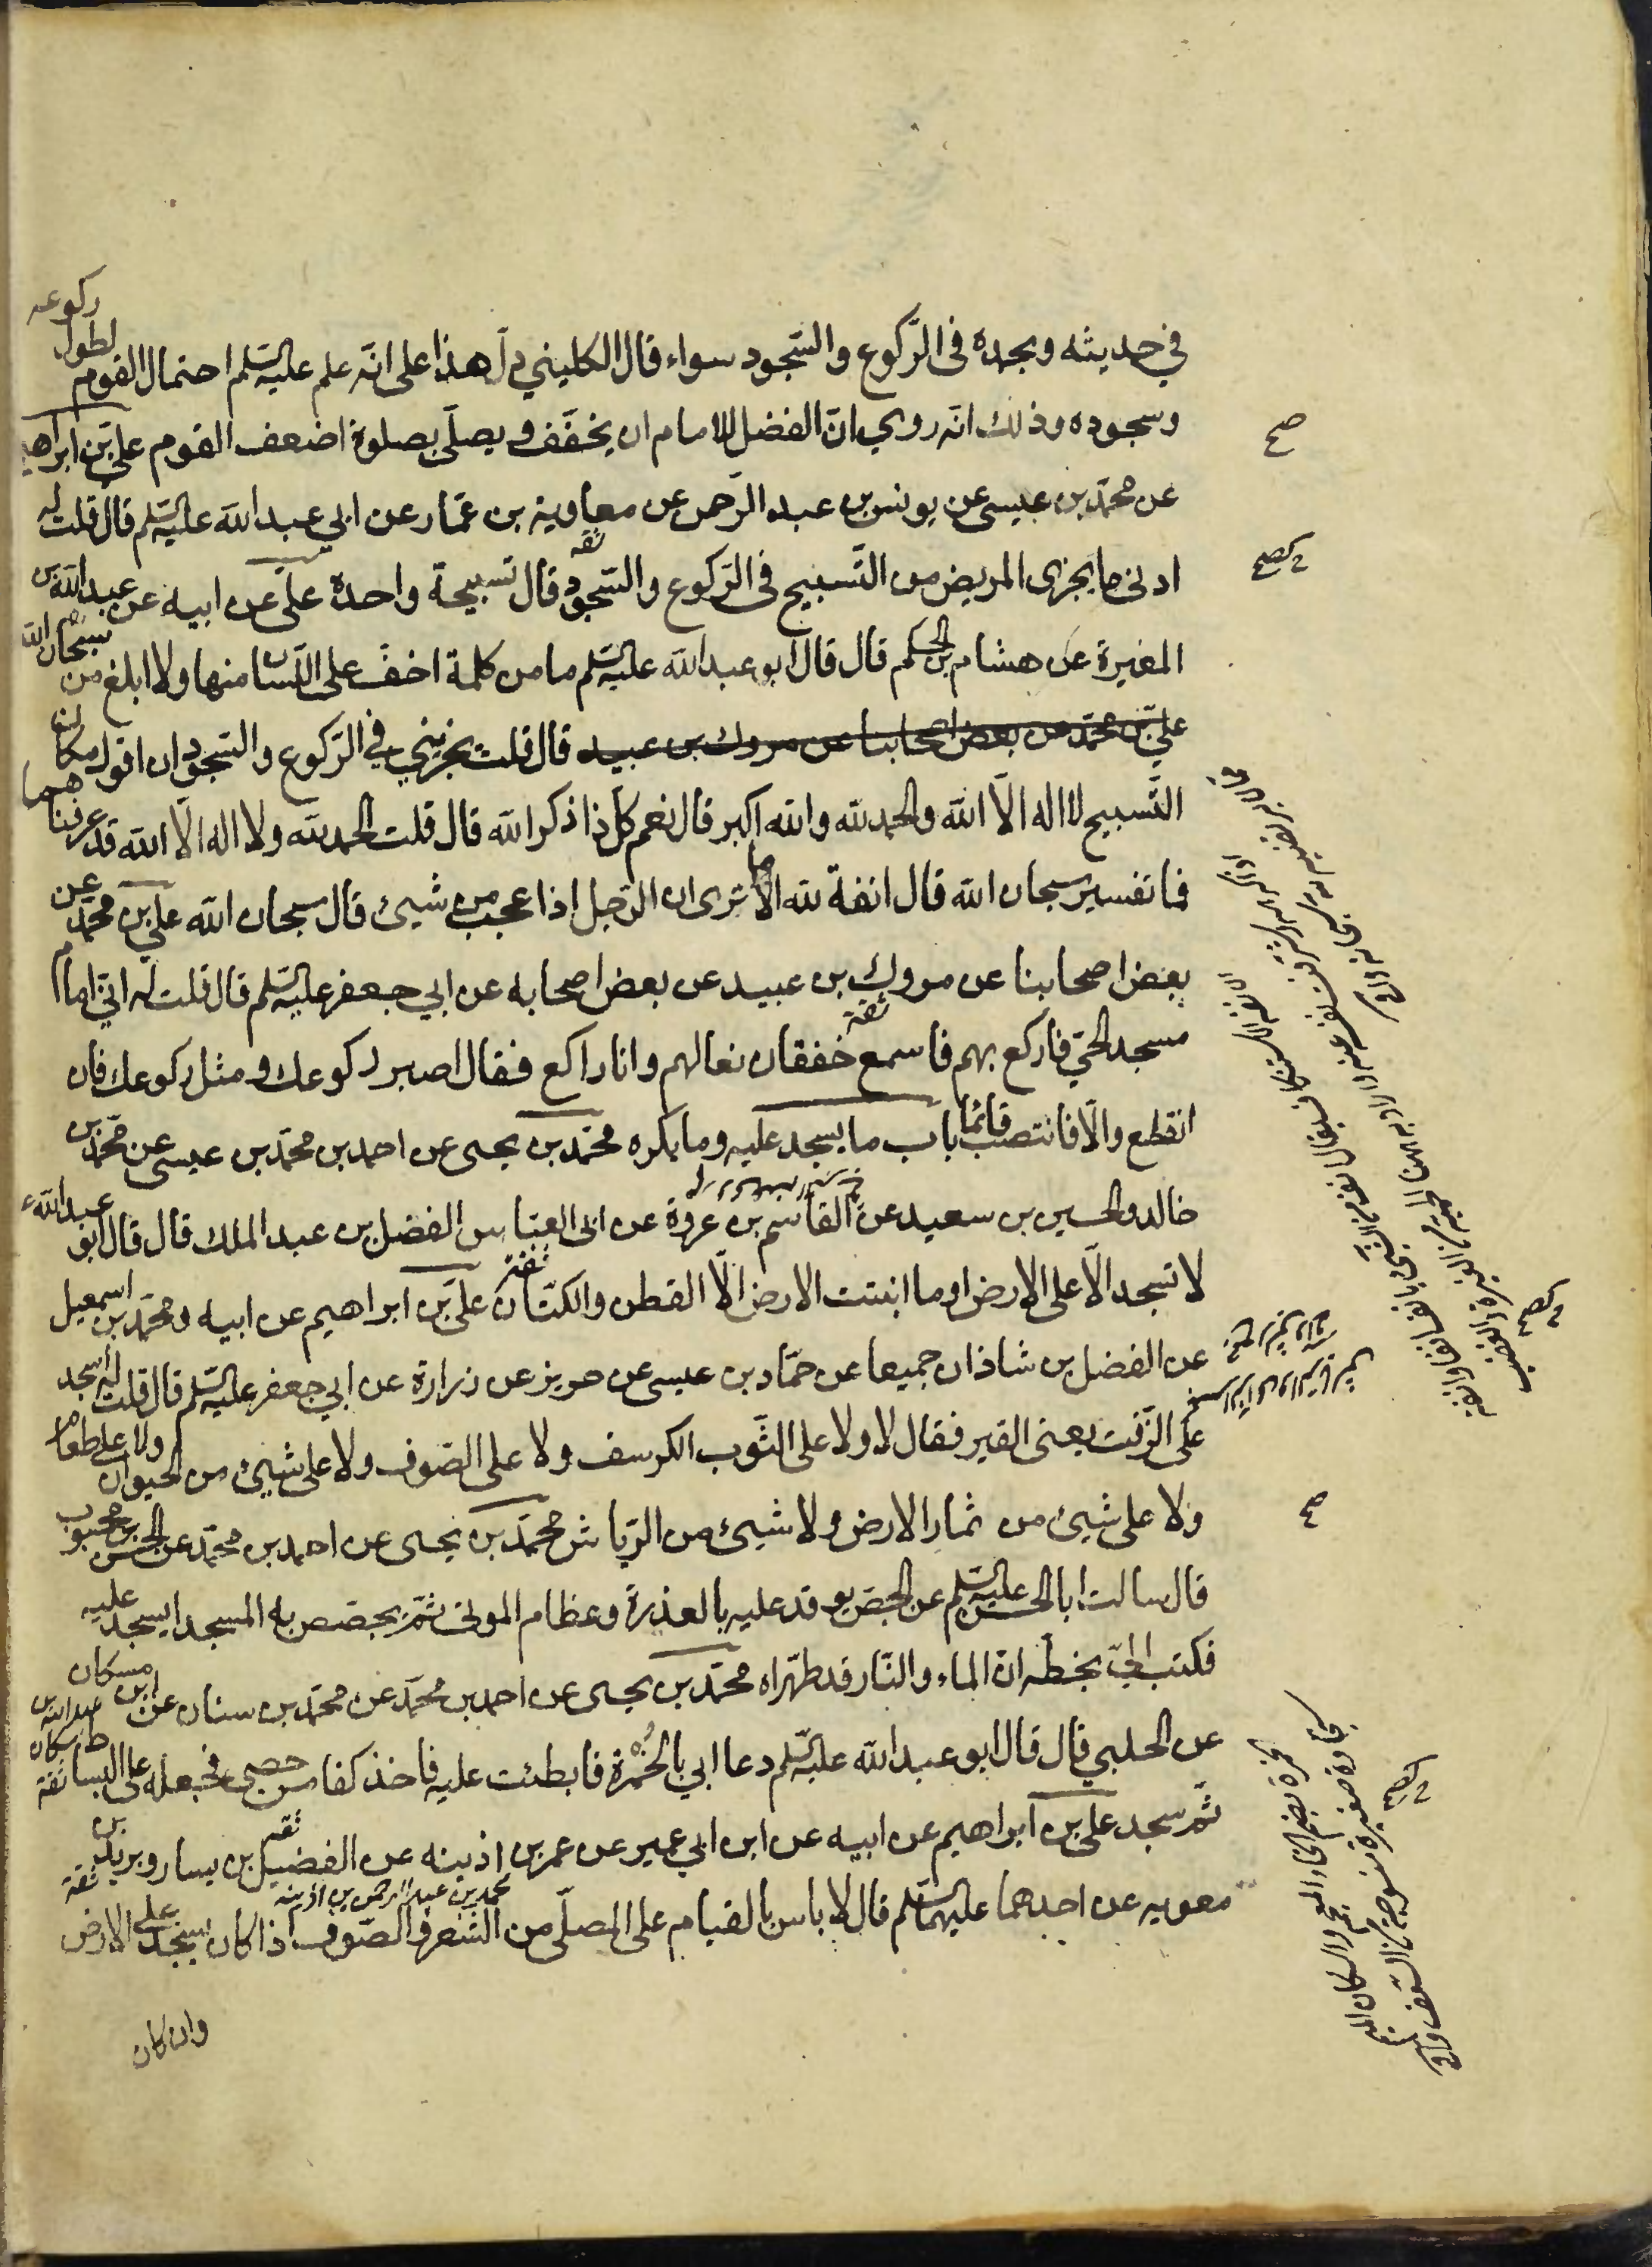 في حديثه وبحمده في الرّكوع والسّجود سواء قال الكليني دلّ هذا على انّه علم عليه السّلم احتمال القوم لطول ركوعه
وسجوده وذلك انّه روي انّ الفضل للامام ان يخفّف ويصلّى بصلوة اضعف القوم علىّ بن ابراهيم
عن محمّد بن عيسى عن يونس بن عبد الرّحمن عن معاوية بن عمّار عن ابي عبد اللّه عليه السّلم قال قلت له
ادنى ما يجزى المريض من التّسبيح في الرّكوع والسّجود قال تسبيحة واحدة علىّ عن ابيه عن عبد اللّه بن
ثقة
المغيرة عن هشام بن الحكم قال قال ابو عبد اللّه عليه السّلم ما من كلمة اخفّ على اللّسان منها ولا ابلغ من سبحان اللّه
علىّ بن محمّد عن بعض اصحابنا عن مروك بن عبيد قال قلت يجزيني في الرّكوع والسّجود ان اقول مكان
التّسبيح لا اله الّا اللّه والحمد للّه واللّه اكبر قال نعم كلّ ذا ذكر اللّه قال قلت الحمد للّه ولا اله الّا اللّه قد عرفناهما
فما تفسير سبحان اللّه قال انفة للّه الا ما ترى ان الرّجل اذا عجب من شيئ قال سبحان اللّه علي بن محمّد عن
بعض اصحابنا عن مروك بن عبيد عن بعض اصحابه عن ابي جعفر عليه السّلم قال قلت له انّي امام
ثقة
مسجد الحىّ فاركع بهم فاسمع خفقان نعالهم وانا راكع فقال اصبر ركوعك ومثل ركوعك فان
انقطع والّا فانتصب قائما باب ما يسجد عليه وما يكره محمّد بن يحيى عن احمد بن محمّد بن عيسى عن محمّد بن
خالد والحسين بن سعيد عن القاسم بن عروة عن ابى العبّاس الفضل بن عبد الملك قال قال ابو عبد اللّه ع
لا تسجد الّا على الارض او ما انبتت الارض الّا القطن والكتّان علىّ بن ابراهيم عن ابيه ومحمّد بن اسمعيل
ثقة
عن الفضل بن شاذان جميعا عن حمّاد بن عيسى عن حريز عن زرارة عن ابي جعفر عليه السّلم قال قلت له أسجد
على الزّفت يعنى القير فقال لا ولا على الثّوب الكرسف ولا على الصّوف ولا على شيئ من الحيوان ولا على طعام
ولا على شيئ من ثمار الارض ولا شيئ من الرّياش محمّد بن يحيى عن احمد بن محمّد عن الحسن بن محبوب
قال سالت ابا الحسن عليه السّلم عن الجصّ يوقد عليه بالعذرة وعظام الموتى ثمّ يجصّص به المسجد ايسجد عليه
فكتب الىّ بخطّه انّ الماء والنّار قد طهّراه محمّد بن يحيى عن احمد بن محمّد عن محمّد بن سنان عن ابن مسكان
عبد اللّه بن مسكان
ثقة
عن الحلبي قال قال ابو عبد اللّه عليه السّلم دعا ابي بالخُمرة فابطئت عليه فاخذ كفا من حصى فجعله على البساط
ثمّ سجد علي بن ابراهيم عن ابيه عن ابن ابي عمير عن عمر بن اذينه عن الفضيل بن يسار وبريد بن
ثقة
محمد بن عبد الرحمن بن اذينه
ثقة
معويه عن احدهما عليهما السّلم قال لا باس بالقيام على المصلّى من الشّعر والصّوف اذا كان يسجد على الارض
وان كان
صح
الخمرة بضم الخاء المعجمة والسكان الميم
سجادة صغيرة منسوجة من السعف